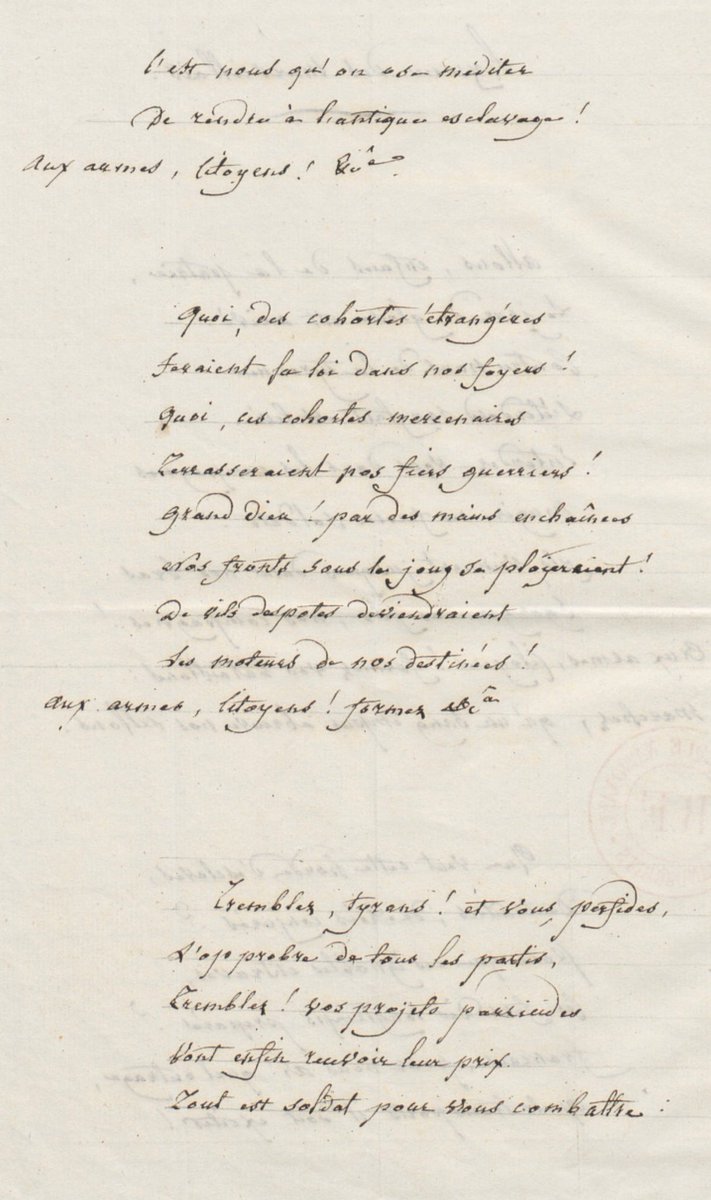 C'est nous qu'on ose méditer
De rendre à l'antique esclavage !
Aux armes, Citoyens ! &câ.
Quoi, des cohortes étrangères
feraient la loi dans nos foyers !
Quoi, ces cohortes mercenaires
Terrasseraient nos fiers guerriers !
Grand dieu ! par des mains enchaînées
Nos fronts sous le joug se ployeraient !
De vils despotes deviendraient
Les moteurs de nos destinées !
Aux armes, Citoyens ! formez &câ
Tremblez, tyrans ! et vous, perfides,
L'opprobre de tous les partis,
Tremblez ! vos projets parricides
Vont enfin recevoir leur prix.
Tout est soldat pour vous combattre :